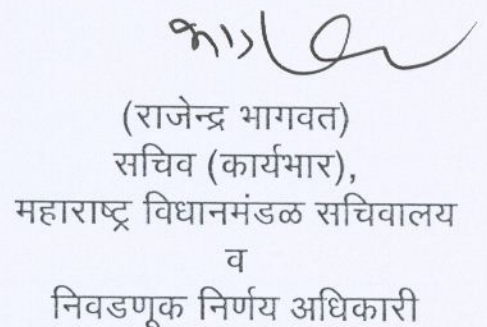 (राजेन्द्र भागवत)
सचिव (कार्यभार),
महाराष्ट्र विधानमंडळ सचिवालय
व
निवडणूक निर्णय अधिकारी